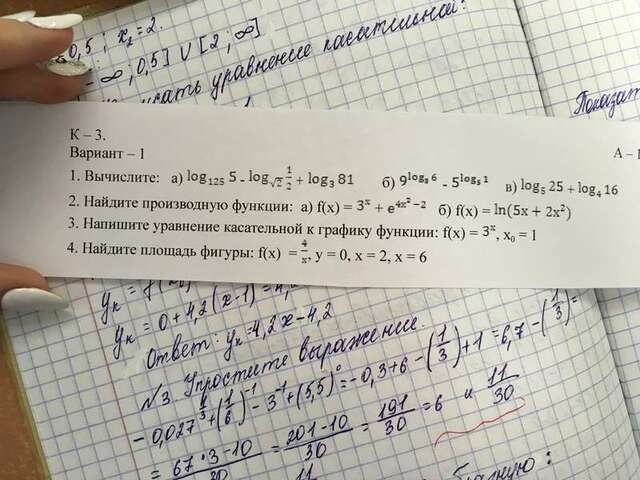 0,5; x₂=2.
-∞; 0,5] ∪ [2; ∞]
уравнение касательной:
Показат
К – 3.
Вариант – 1 А – 1
1. Вычислите: а) log₁₂₅ 5 - log_√2 1/2 + log₃ 81 б) 9^(log₃ 6) - 5^(log₅ 1) в) log₅ 25 + log₄ 16
2. Найдите производную функции: а) f(x) = 3ˣ + e^(4x²-2) б) f(x) = ln(5x + 2x²)
3. Напишите уравнение касательной к графику функции: f(x) = 3ˣ, x₀ = 1
4. Найдите площадь фигуры: f(x) = 4/x, y = 0, x = 2, x = 6
yк = 0+4,2(x-1)=4,
Ответ: yк=4,2x-4,2
№3 Упростите выражение.
-0,027^(1/3)+(1/6)⁻¹-3⁻¹+(5,5)⁰=-0,3+6-(1/3)+1=6,7-(1/3)=
=(67·3-10)/30=(201-10)/30=191/30=6 и 11/30